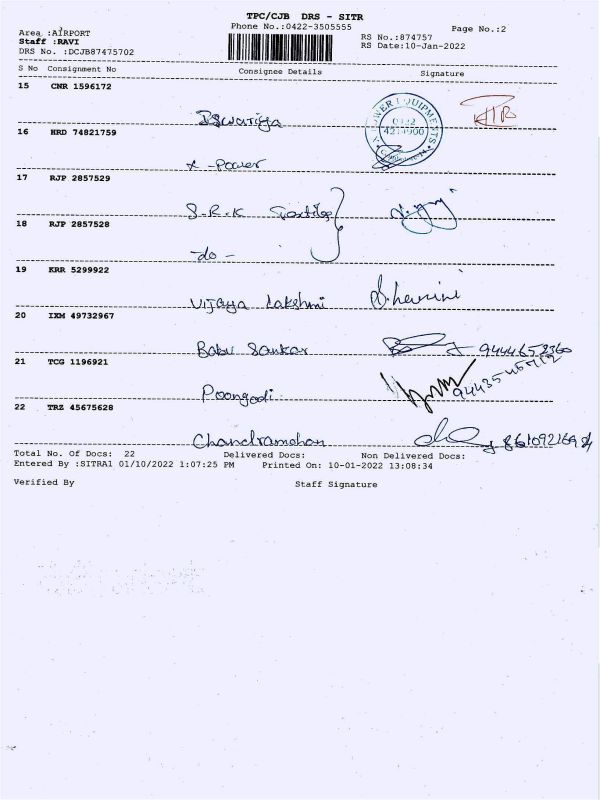 TPC/CJB DRS - SITR
Phone No.:0422-3505555
Page No.:2
Area :AIRPORT
Staff :RAVI
DRS No. :DCJB87475702
RS No.:874757
RS Date:10-Jan-2022
S No Consignment No Consignee Details Signature
15 CNR 1596172
Iswariya
16 HRD 74821759
X-Power
POWER EQUIPMENTS
0422
4214900
17 RJP 2857529
S.R.K
18 RJP 2857528
do -
19 KRR 5299922
Vijaya Lakshmi
20 IXM 49732967
Babu Sankar
21 TCG 1196921
Poongodi
22 TRZ 45675628
Chandramohan
Total No. Of Docs: 22 Delivered Docs: Non Delivered Docs:
Entered By :SITRA1 01/10/2022 1:07:25 PM Printed On: 10-01-2022 13:08:34
Verified By Staff Signature